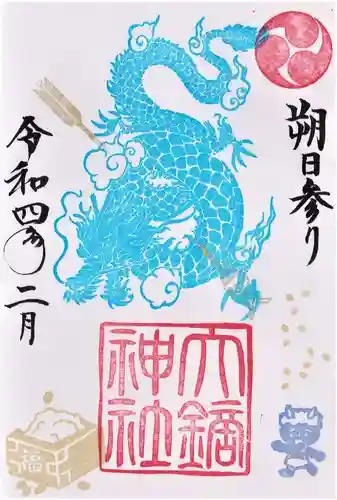 朔日参り
大鏑
神社
令和四年二月
福